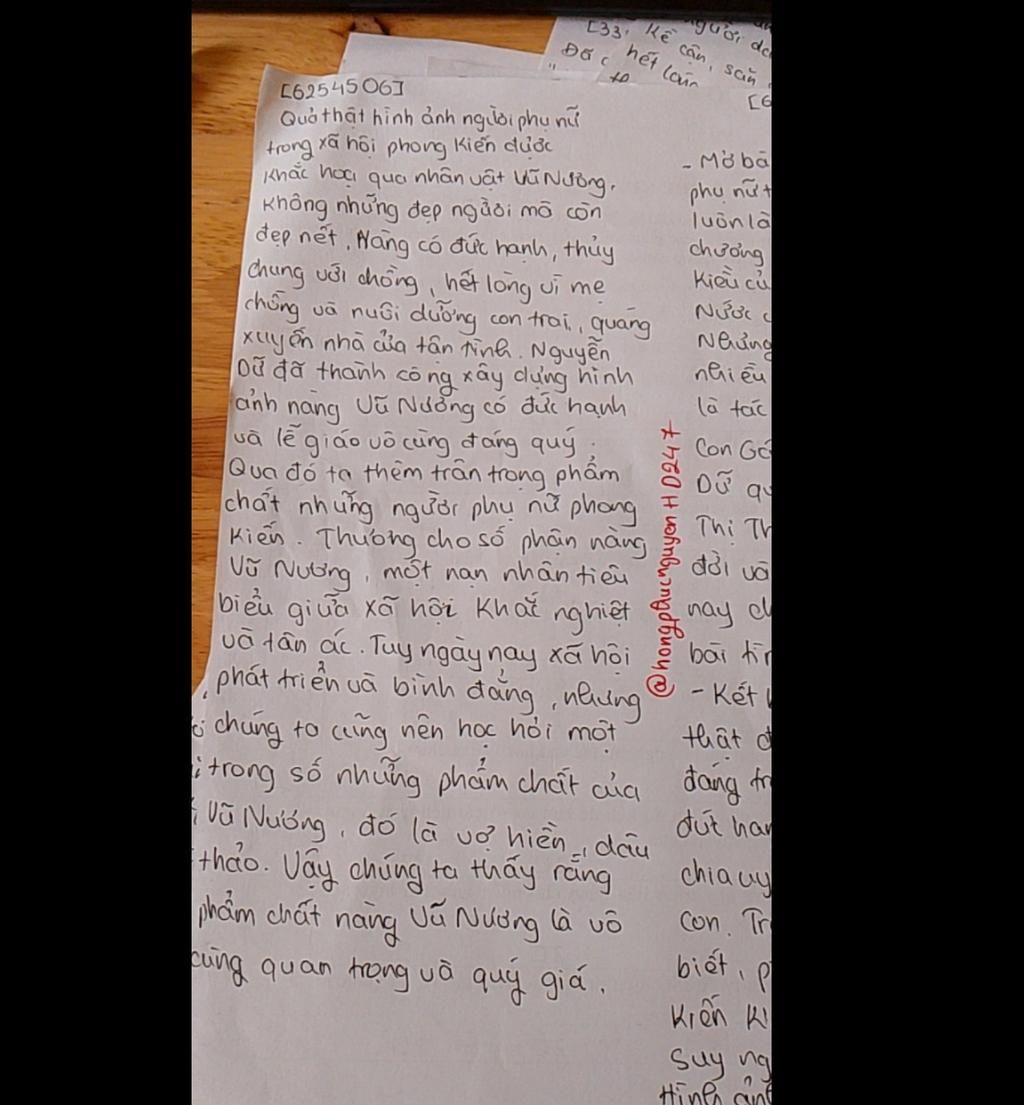 [33.
Kề cận, sẵn
hết lòng
[6254506]
Quả thật hình ảnh người phụ nữ
trong xã hội phong kiến được
khắc họa qua nhân vật Vũ Nương,
không những đẹp người mà còn
đẹp nết. Nàng có đức hạnh, thủy
chung với chồng, hết lòng vì mẹ
chồng và nuôi dưỡng con trai, quáng
xuyến nhà cửa tận tình. Nguyễn
Dữ đã thành công xây dựng hình
ảnh nàng Vũ Nương có đức hạnh
và lễ giáo vô cùng đáng quý.
Qua đó ta thêm trân trọng phẩm
chất những người phụ nữ phong
kiến. Thương cho số phận nàng
Vũ Nương, một nạn nhân tiêu
biểu giữa xã hội khắc nghiệt
và tàn ác. Tuy ngày nay xã hội
phát triển và bình đẳng, nhưng
chúng ta cũng nên học hỏi một
trong số những phẩm chất của
Vũ Nương, đó là vợ hiền, dâu
thảo. Vậy chúng ta thấy rằng
phẩm chất nàng Vũ Nương là vô
cùng quan trọng và quý giá.
@hongphucnguyenHD247
[6
- Mở bà
phụ nữ t
luôn là
chương
Kiều củ
Nước c
Nhưng
nhiều
là tác
Con Gá
Dữ qu
Thị Th
đời và
nay ch
bài tìn
- Kết
thật đ
đáng tr
đứt han
chia uy
con. Tr
biết, p
Kiến Ki
Suy ng
Hình ản